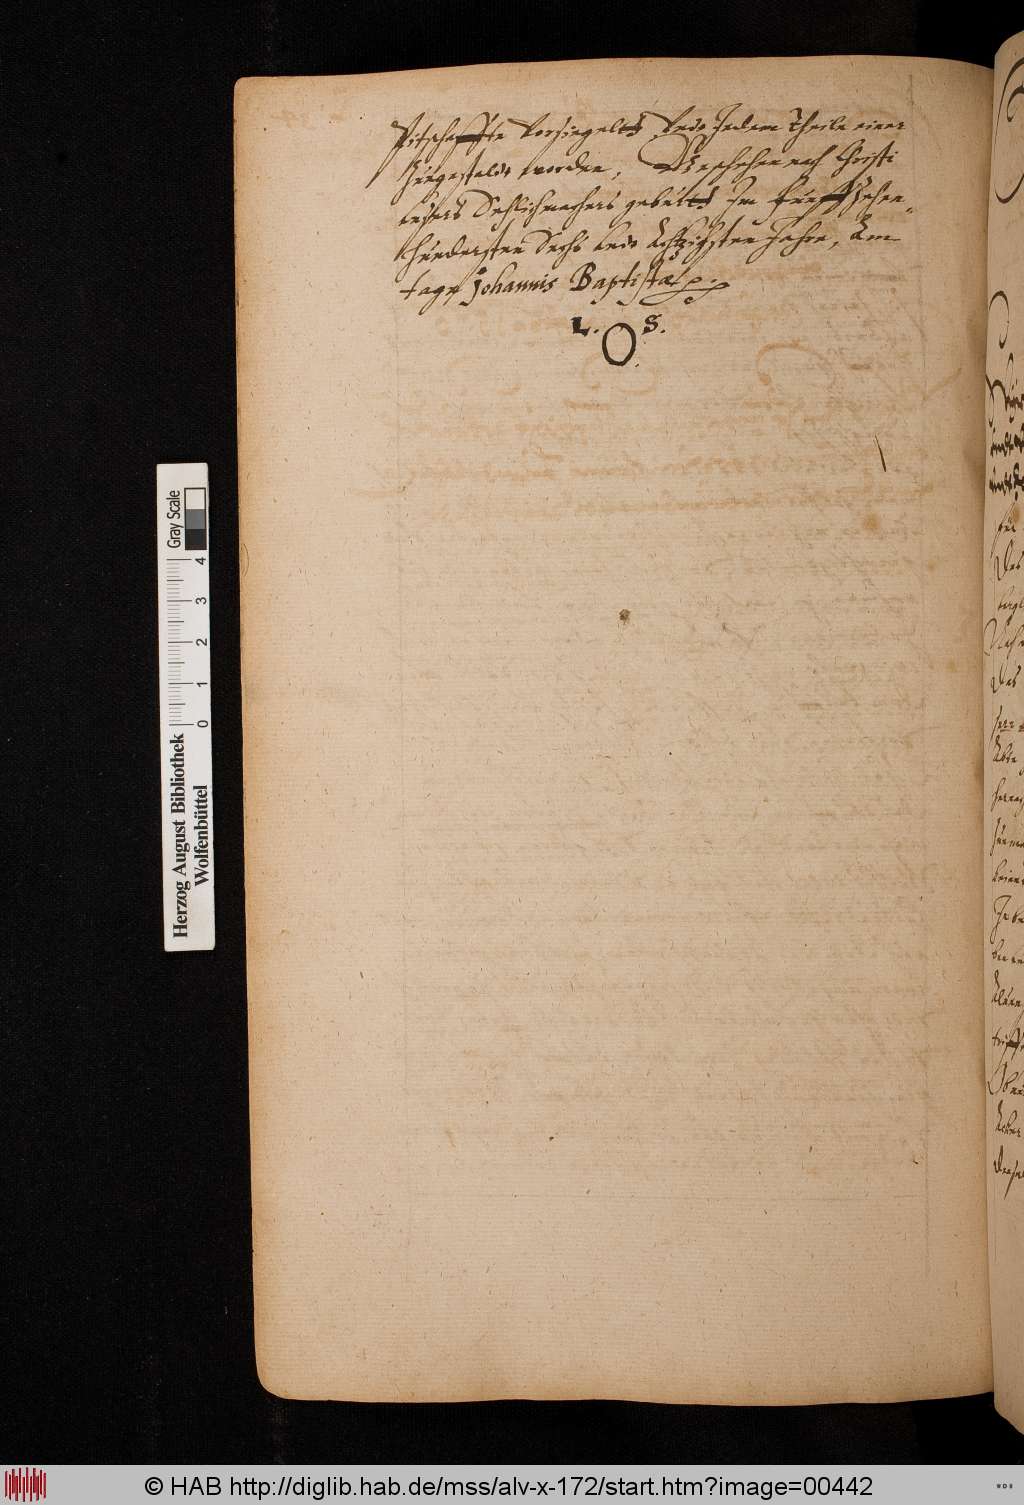 Pitschafften vorsiegeltt, Vnd Jedem Theile einer
Zugestaldt worden, Geschehen nach Christi
vnsers Sehlichmachers geburtt Im Funffzehen-
hundersten Sechs vnd Achtzigsten Jahre, Am
tage Johannis Baptistæ
L. S.
Gray Scale
0 1 2 3 4
Herzog August Bibliothek
Wolfenbüttel
© HAB http://diglib.hab.de/mss/alv-x-172/start.htm?image=00442